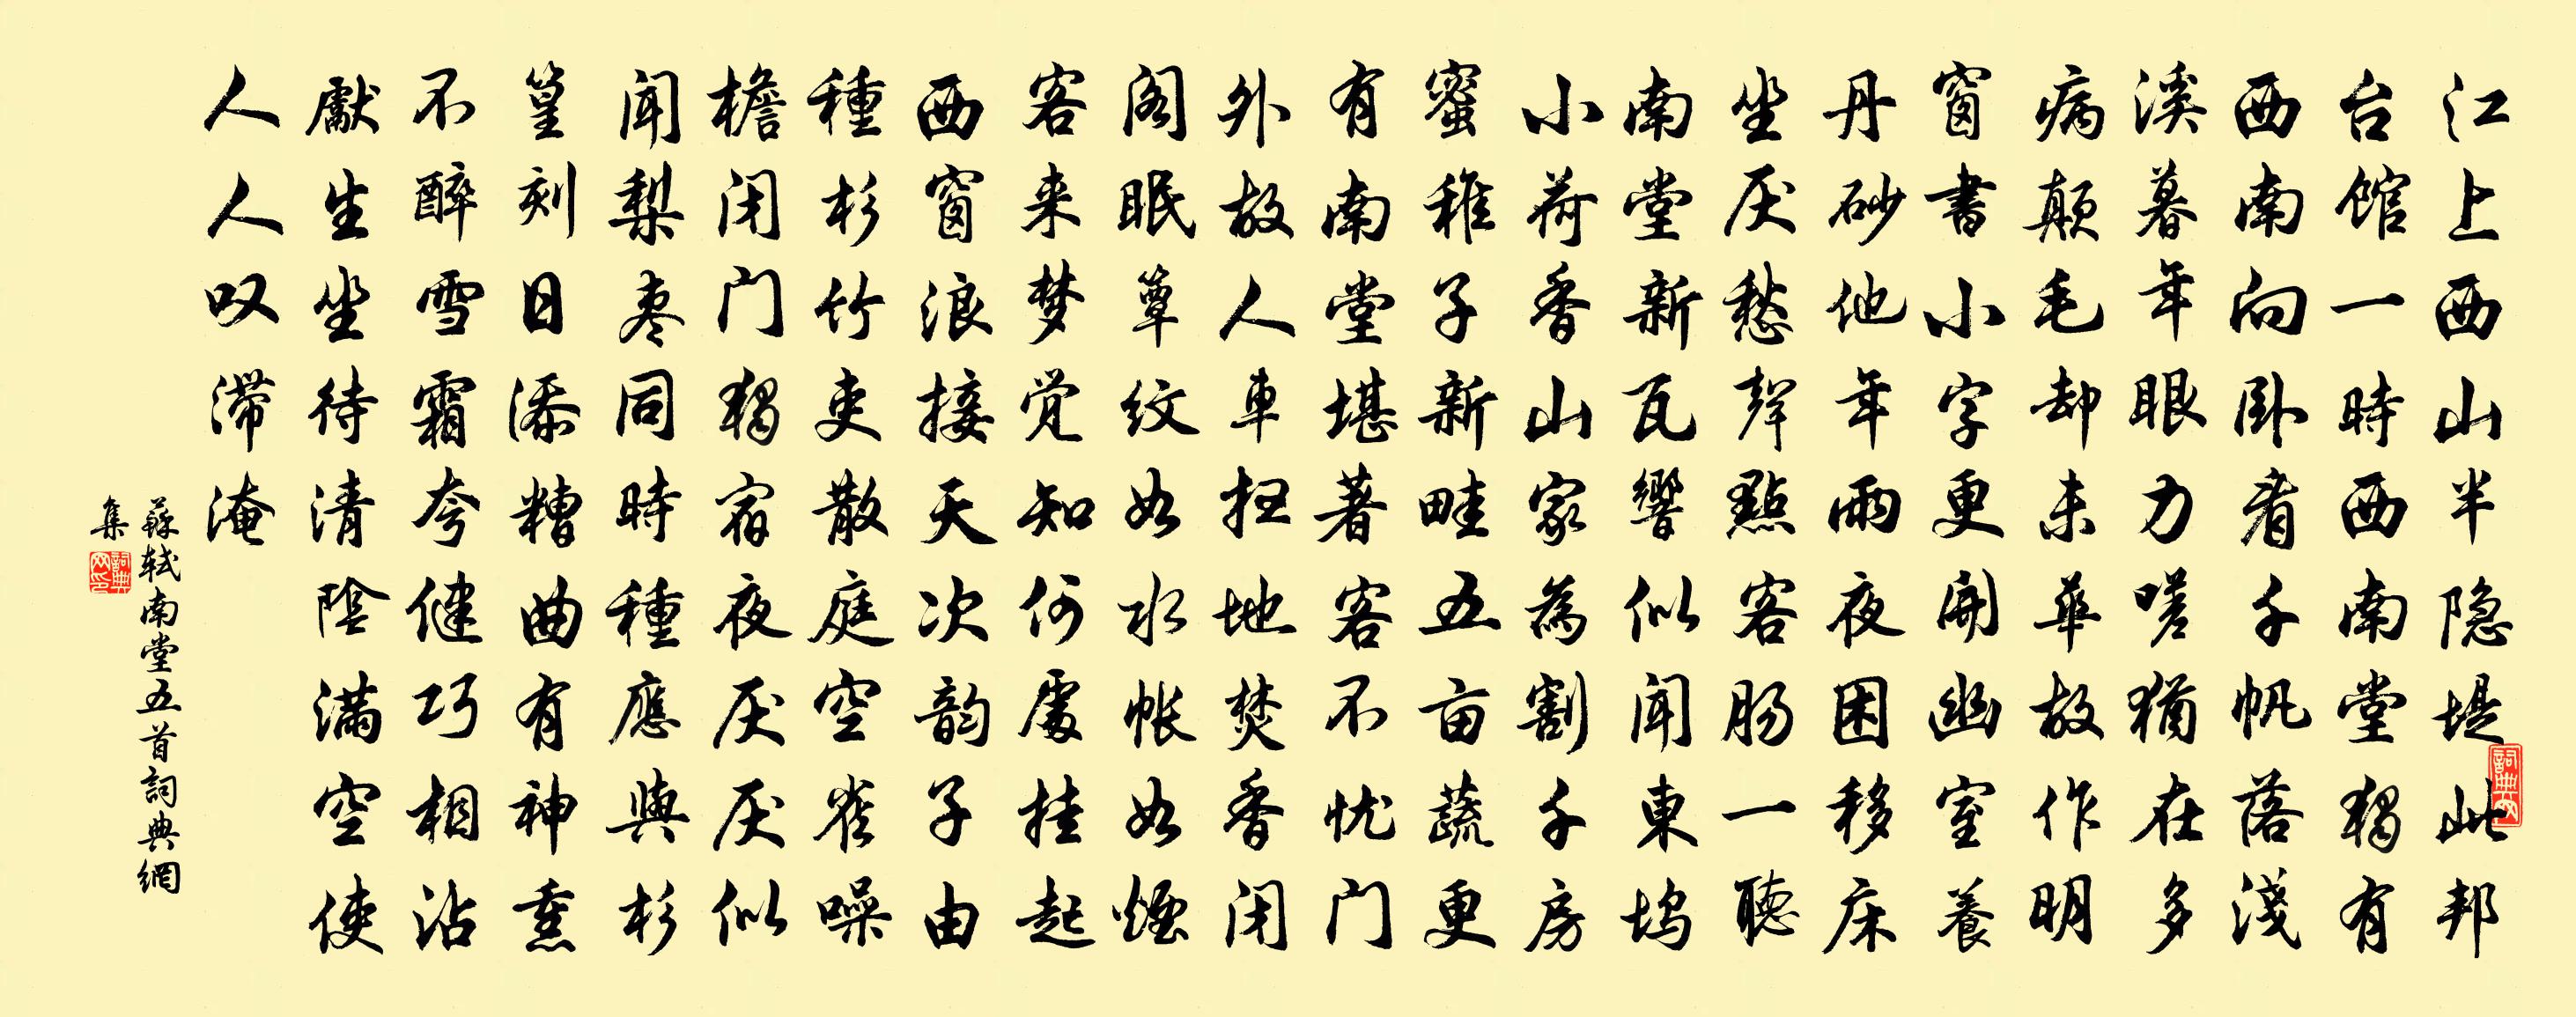 江上西山半隐堤此邦
台馆一時西南堂独有
西南向卧看千帆落淺
溪暮年眼力嗟猶在多
病颠毛却未華故作明
窗書小字更開幽室養
丹砂他年雨夜困移床
坐厌愁聲點客肠一聽
南堂新瓦響似闻東坞
小荷香山家為割千房
蜜稚子新畦五亩蔬更
有南堂堪著客不忧门
外故人車扫地焚香闭
阁眠簟纹如水帐如煙
客来梦觉知何處挂起
西窗浪接天次韵子由
種杉竹吏散庭空雀噪
檐闭门独宿夜厌厌似
闻梨枣同時種應與杉
篁刻日添糟曲有神熏
不醉雪霜夸健巧相沾
獻生坐待清陰满空使
人人叹滞淹
蘇轼南堂五首詞典網
集
詞典网印
詞典网